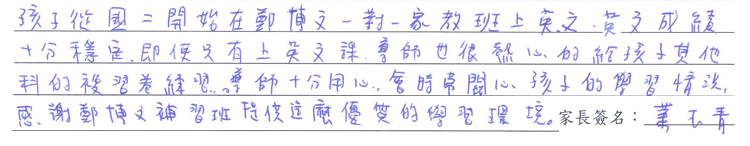 孩子從國二開始在鄭博文一對一家教班上英文,英文成績
十分穩定,即使只有上英文課,導師也很熱心的給孩子其他
科的複習卷練習,導師十分用心,會時常關心孩子的學習情況,
感謝鄭博文補習班提供這麼優質的學習環境。家長簽名:蕭玉青